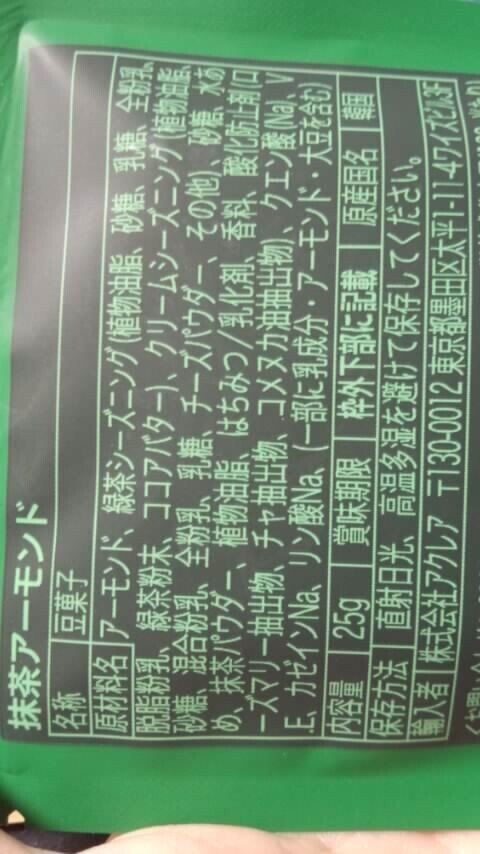 抹茶アーモンド
名称 豆菓子
原材料名 アーモンド、緑茶シーズニング(植物油脂、砂糖、乳糖、全粉乳、
脱脂粉乳、緑茶粉末、ココアバター)、クリームシーズニング(植物油脂、
砂糖、混合粉乳、全粉乳、乳糖、チーズパウダー、その他)、砂糖、水あ
め、抹茶パウダー、植物油脂、はちみつ/乳化剤、香料、酸化防止剤(ロ
ーズマリー抽出物、チャ抽出物、コメヌカ油抽出物)、クエン酸(Na)、V
.E、カゼインNa、リン酸Na、(一部に乳成分・アーモンド・大豆を含む)
内容量 25g 賞味期限 枠外下部に記載 原産国名 韓国
保存方法 直射日光、高温多湿を避けて保存してください。
輸入者 株式会社アクレア 〒130-0012 東京都墨田区太平1-11-4ワイズビル3F